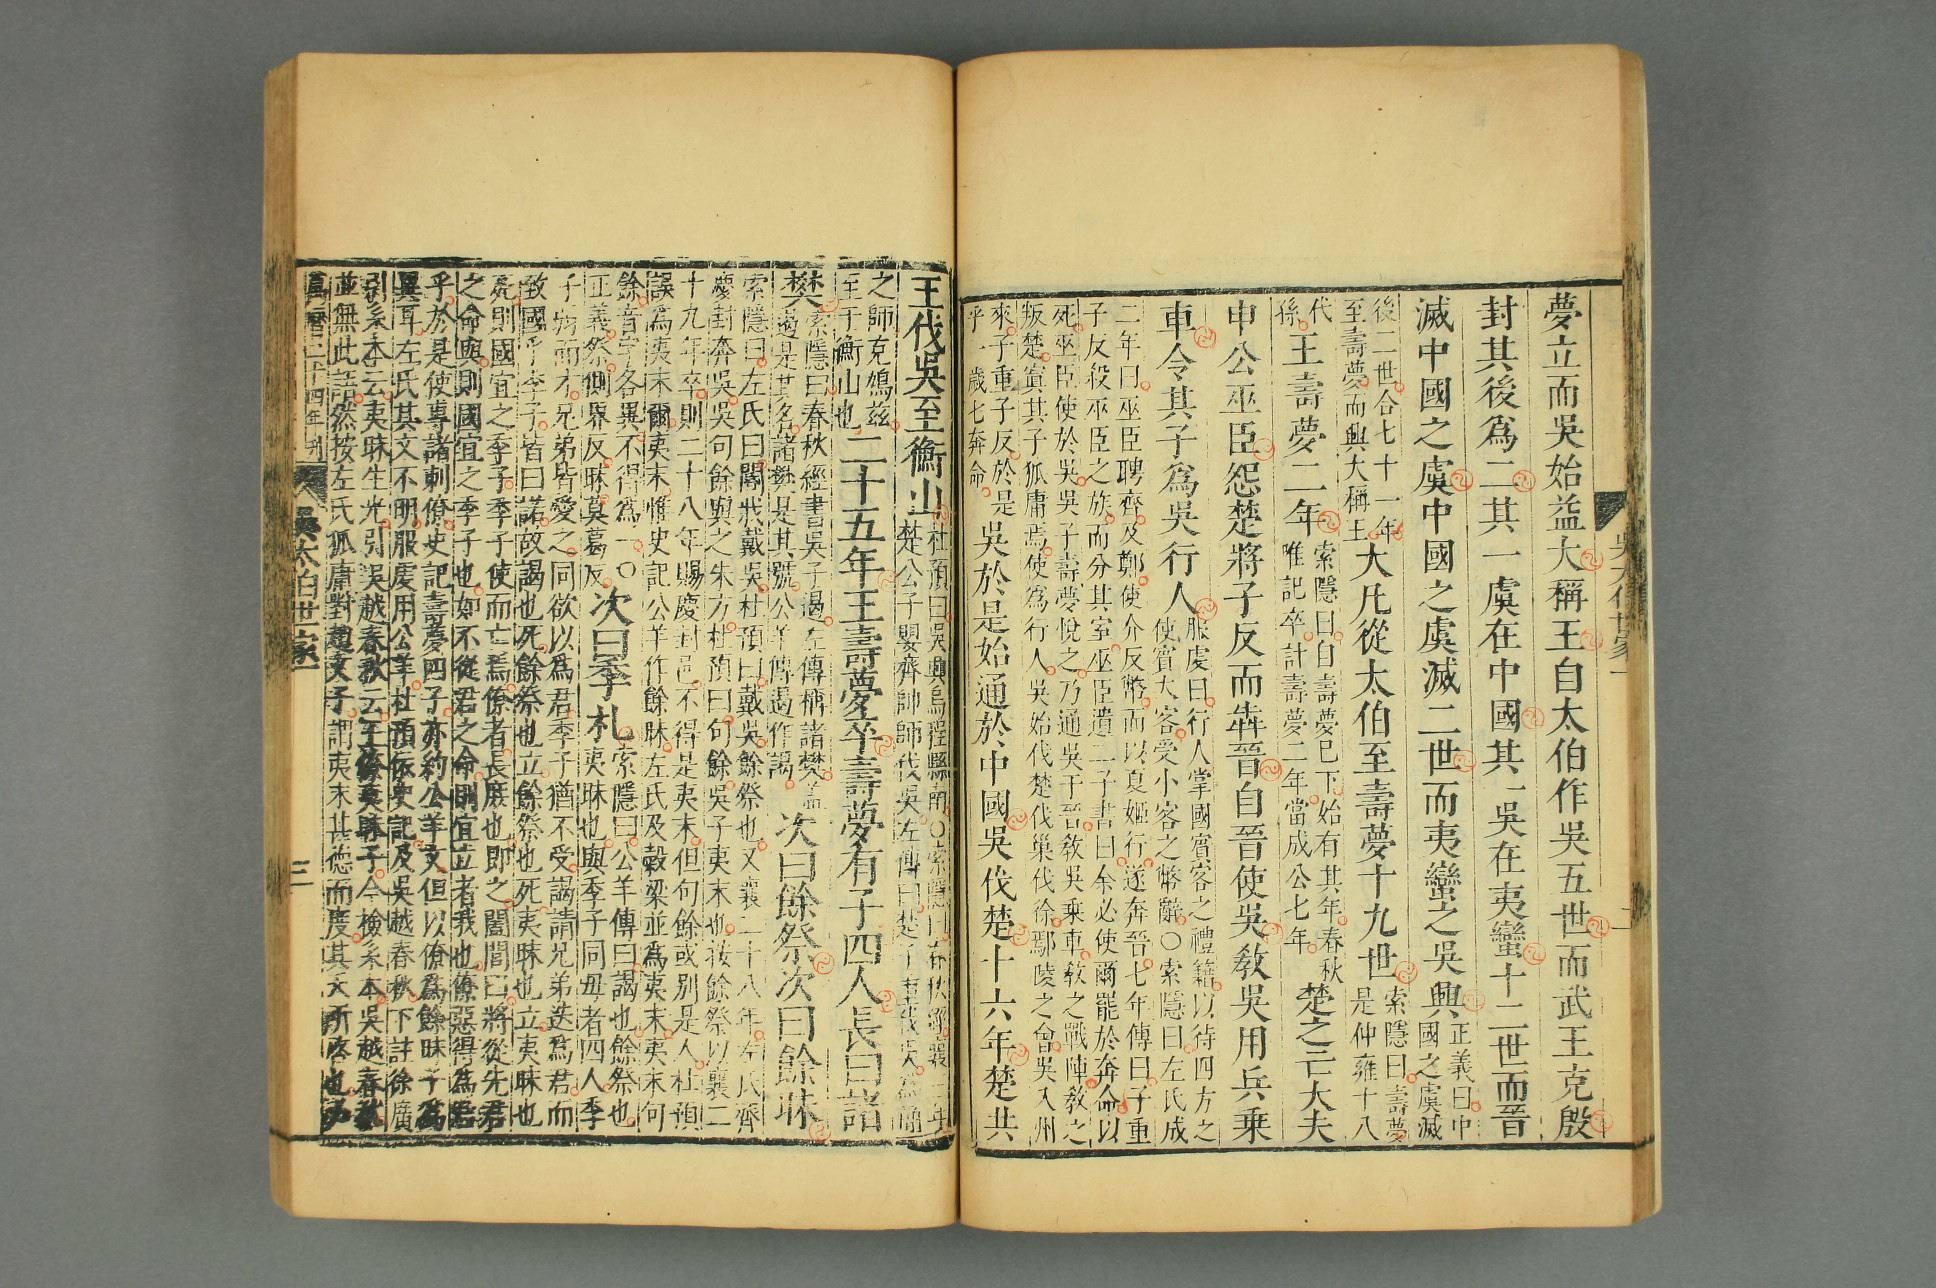 夢立而吳始益大稱王自太伯作吳五世而武王克殷
封其後爲二其一虞在中國其一吳在夷蠻十二世而晉
滅中國之虞中國之虞滅二世而夷蠻之吳興
正義曰中
國之虞滅
後二世合七十一年
至壽夢而興大稱王
大凡從太伯至壽夢十九世
索隱曰壽夢
是仲雍十八
代
孫
王壽夢二年
索隱曰自壽夢已下始有其年春秋
唯記卒計壽夢二年當成公七年
楚之亡大夫
申公巫臣怨楚將子反而犇晉自晉使吳敎吳用兵乘
車令其子爲吳行人
服虔曰行人掌國賓客之禮籍以待四方之
使賓大客受小客之幣辭○索隱曰左氏成
二年曰巫臣聘齊及鄭使介反幣而以夏姬行遂奔晉七年傳曰子重
子反殺巫臣之族而分其室巫臣遺二子書曰余必使爾罷於奔命以
死巫臣使於吳吳子壽夢悅之乃通吳于晉敎吳乘車敎之戰陣敎之
叛楚寘其子狐庸焉使爲行人吳始伐楚伐巢伐徐鄢陵之會吳入州
來子重子反於是
乎一歲七奔命
吳於是始通於中國吳伐楚十六年楚共
吳太伯世家一
王伐吳至衡山
杜預曰吳興烏程縣南○索隱曰春秋經襄三年
楚公子嬰齊帥師伐吳左傳曰楚子重伐吳爲簡
之師克鳩茲
至于衡山也
二十五年王壽夢卒壽夢有子四人長曰諸
樊
索隱曰春秋經書吳子遏左傳稱諸樊蓋
遏是其名諸樊是其號公羊傳遏作謁
次曰餘祭次曰餘眛
索隱曰左氏曰閽戕戴吳杜預曰戴吳餘祭也又襄二十八年左氏齊
慶封奔吳吳句餘與之朱方杜預曰句餘吳子夷末也按餘祭以襄二
十九年卒則二十八年賜慶封邑不得是夷末但句餘或別是人杜預
誤爲夷末爾夷末惟史記公羊作餘眛左氏及穀梁並爲夷末夷末句
餘音字各異不得爲一○
正義祭側界反眛莫葛反
次曰季札
索隱曰公羊傳曰謁也餘祭也
夷眛也與季子同母者四人季
子弱而才兄弟皆愛之同欲以爲君季子猶不受謁請兄弟迭爲君而
致國乎季子皆曰諾故謁也死餘祭也立餘祭也死夷眛也立夷眛也
死則國宜之季子季子使而亡焉僚者長庶也即之闔閭曰將從先君
之命與則國宜之季子也如不從君之命則宜立者我也僚惡得爲君
乎於是使專諸刺僚史記壽夢四子亦約公羊文但以僚爲餘眛子爲
異耳左氏其文不明服虔用公羊杜預依史記及吳越春秋下註徐廣
引系本云夷眛生光引吳越春秋云王僚夷眛子今檢系本吳越春秋
並無此語然按左氏狐庸對趙文子謂夷末甚德而度其天所啓也
萬曆二十四年刊
吳太伯世家一
三